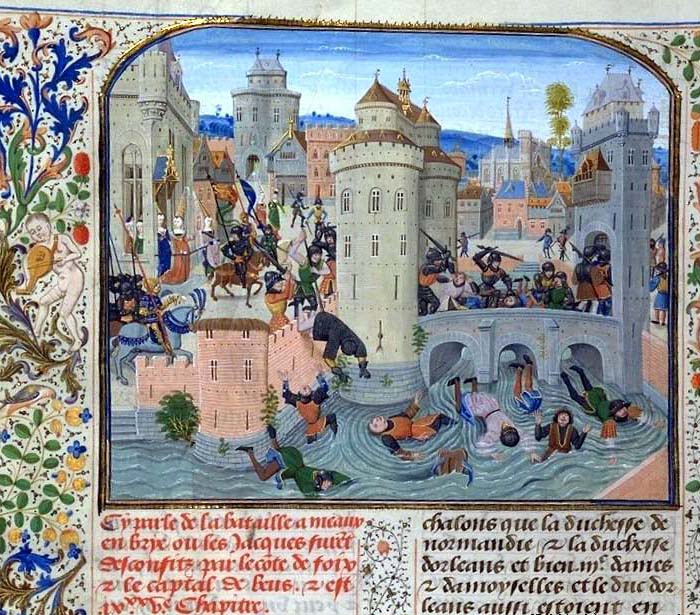 Cy parle de la bataille a meaux
en brye ou les Jacques furēt
desconfitz par le côte de foix
& le captal de beus. & est
Chapitre.
chalons que la duchesse de
normandie & la duchesse
dorleans et bien .iijc. dames
& damoyselles et le duc dor
leans aussi estoient en